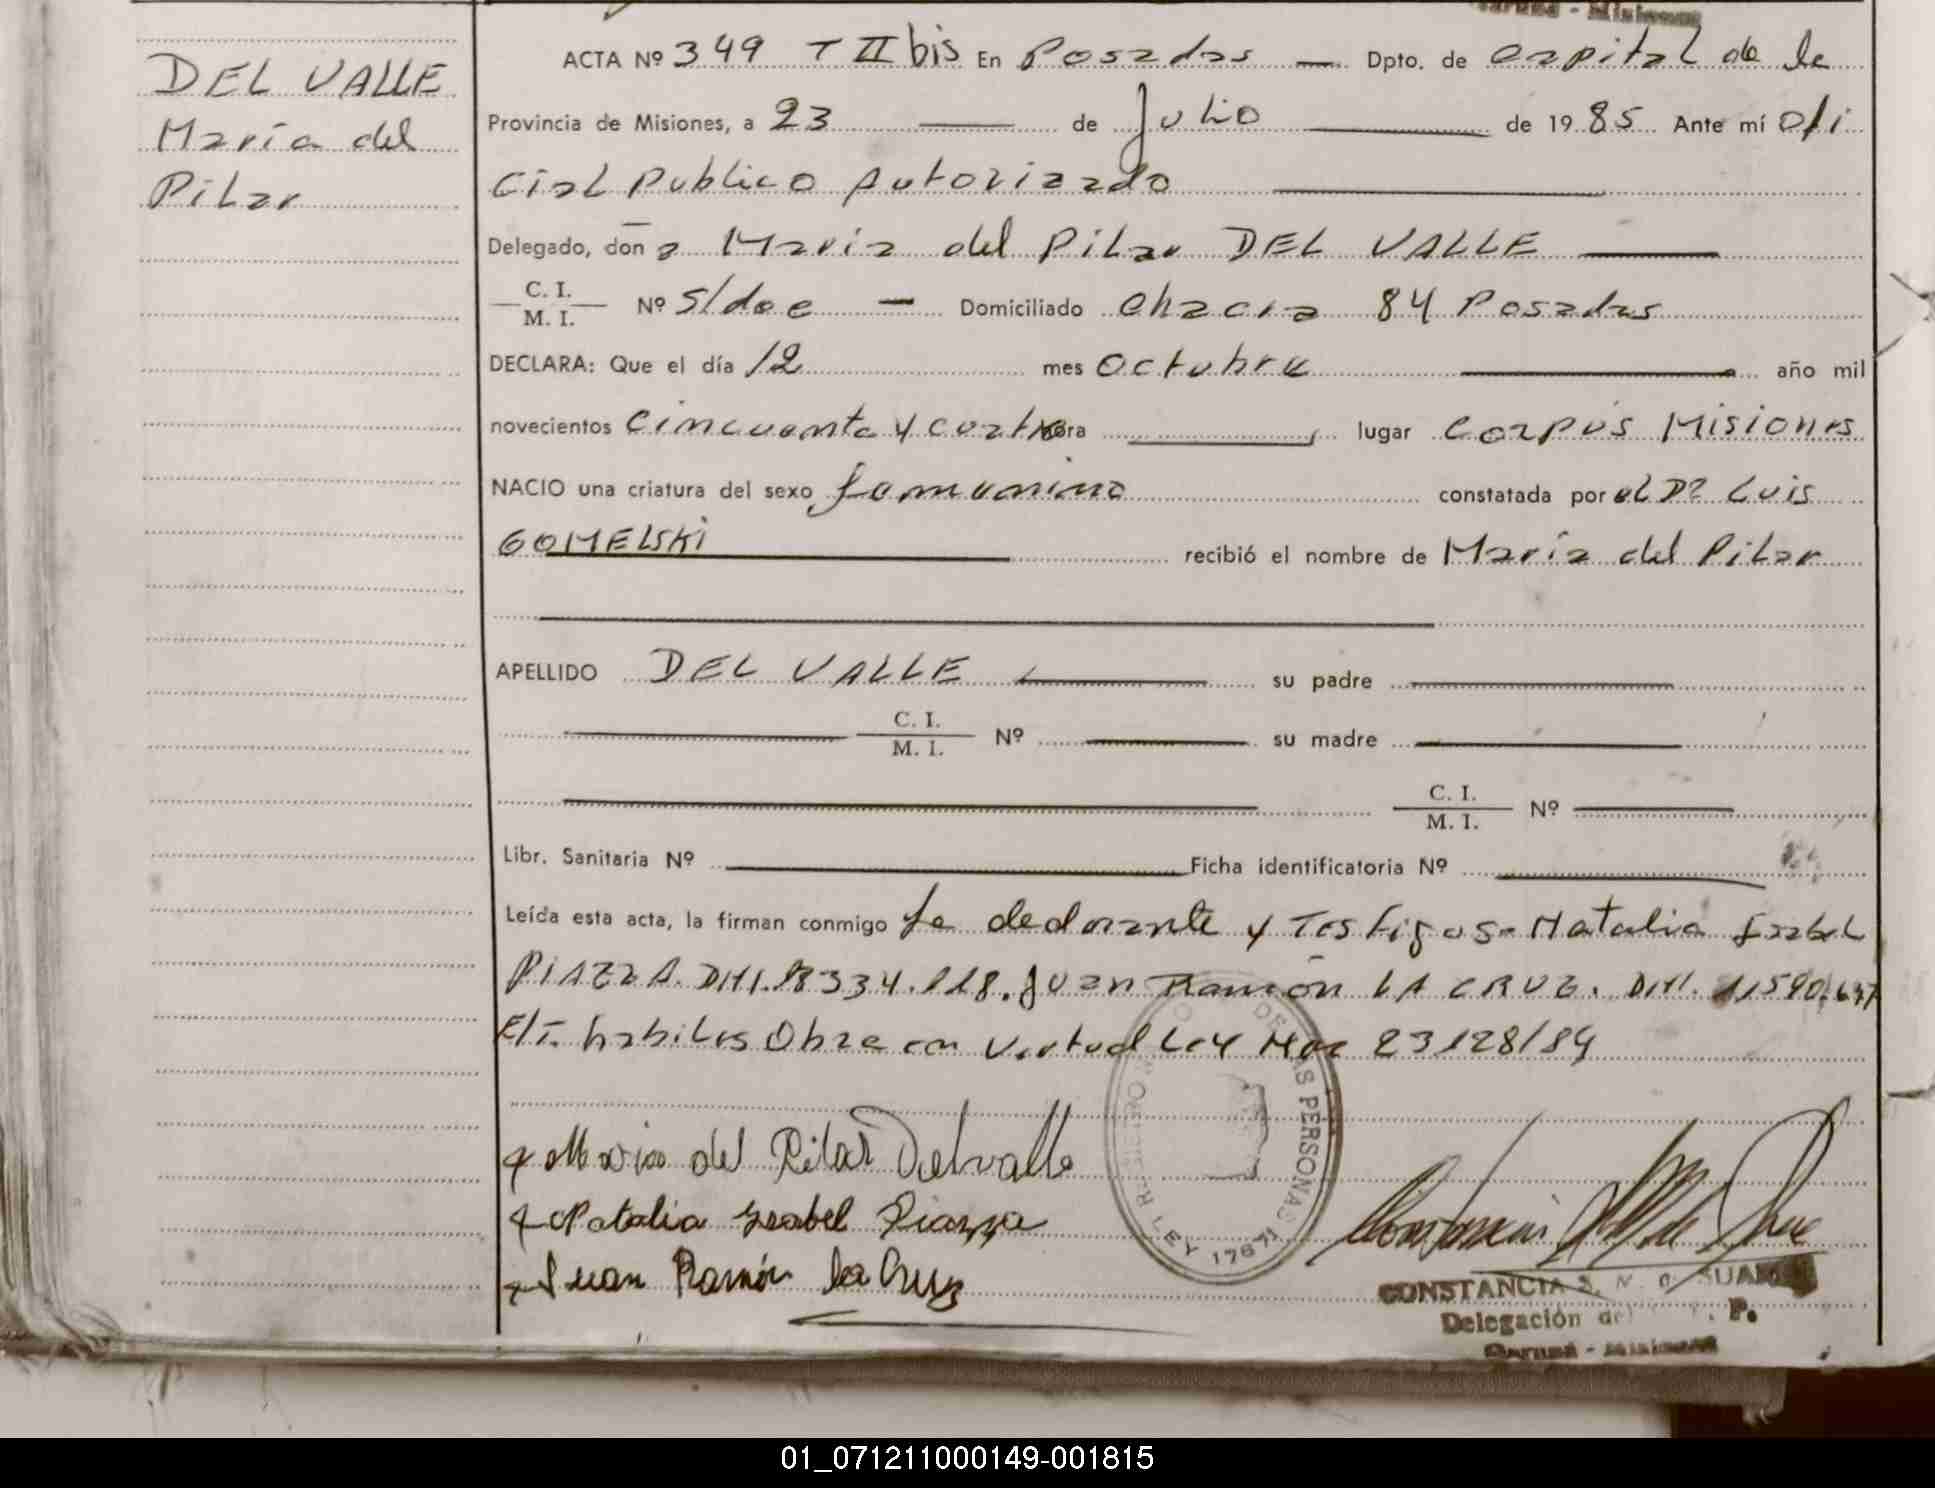 DEL VALLE
María del
Pilar
ACTA Nº 349 T II bis En Posadas — Dpto. de capital de la
Provincia de Misiones, a 23 — de Julio — de 19 85 Ante mí ofi
cial publico Autorizado
Delegado, don a Maria del Pilar DEL VALLE
C. I.
M. I. Nº s/doc — Domiciliado chacra 84 Posadas
DECLARA: Que el día 12 mes octubre — año mil
novecientos cincuenta y cuatro hora — lugar Corpus Misiones
NACIO una criatura del sexo femenino constatada por el Dr Luis
GOMELSKI recibió el nombre de María del Pilar
APELLIDO DEL VALLE — su padre —
C. I.
M. I. Nº — su madre —
C. I.
M. I. Nº —
Libr. Sanitaria Nº — Ficha identificatoria Nº —
Leída esta acta, la firman conmigo la declarante y Testigos Natalia Isabel
PIAZZA. DNI. 18334.118. Juan Ramón LA CRUZ. DNI. 11590.
habiles Obra en Virtud Ley Nac 23128/84
Maria del Pilar Delvalle
Natalia Ysabel Piazza
Juan Ramón la Cruz
DE LAS PERSONAS
LEY 17671
CONSTANCIA S.
Delegación de P.
Garupá - Misiones
01_071211000149-001815